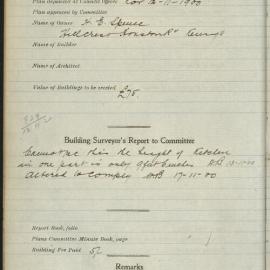 Plan deposited at Council Offices Nov 12-11-1900
Plan approved by Committee
Name of Owner H. E. Spence
Hillcrest
Name of Builder
Name of Architect
Value of Buildings to be erected
£75
Building Surveyor's Report to Committee
the height of Kitchen
in one part is only 9 feet
altered to comply 17-11-00
Report Book, folio
Plans Committee Minute Book, page
Building Fee Paid 5/-
Remarks